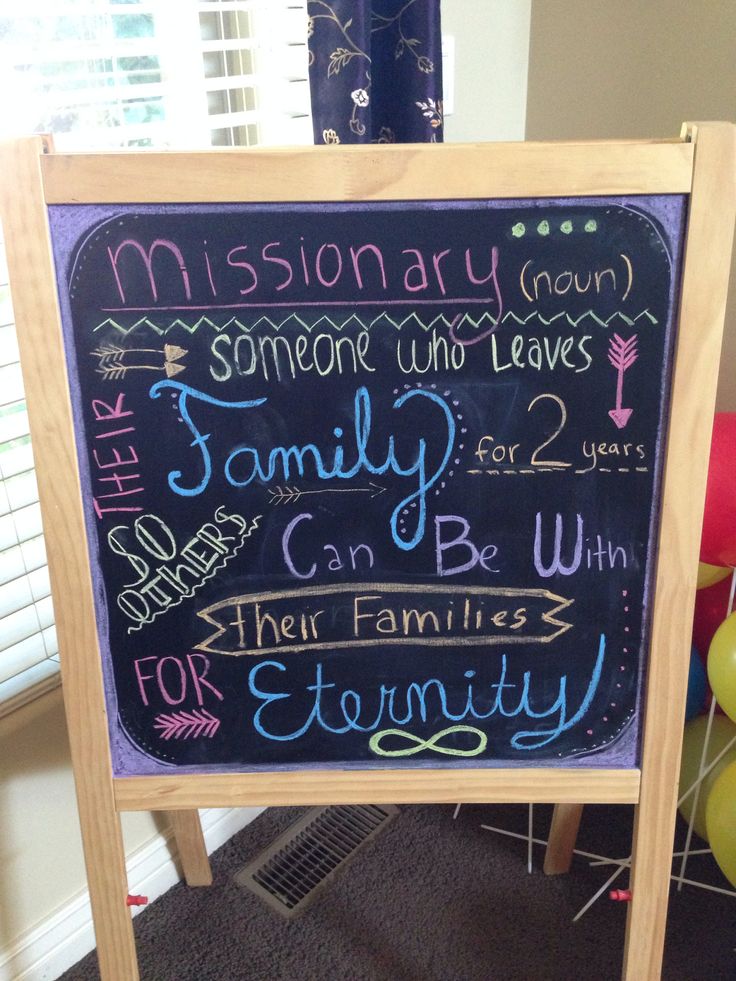 missionary (noun)
Someone who Leaves
THEIR Family for 2 years
SO OTHERS Can Be With
their Families
FOR Eternity